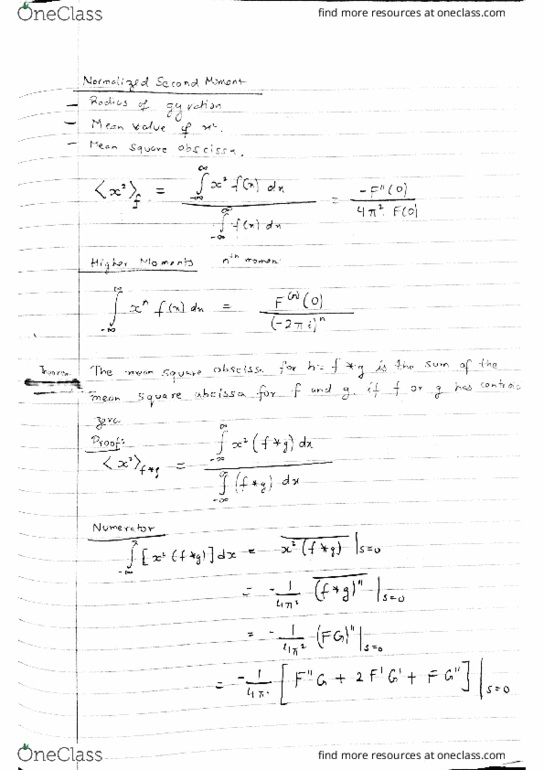 OneClass find more resources at oneclass.com
Normalized Second Moment
- Radius of gyration
- Mean value of x².
- Mean square abscissa.
⟨x²⟩_f = ∫_{-∞}^{∞} x² f(x) dx / ∫_{-∞}^{∞} f(x) dx = -F''(0) / 4π² F(0)
Higher Moments nth momen
∫_{-∞}^{∞} x^n f(x) dx = F^(n)(0) / (-2πi)^n
Theorem The mean square abscissa for h = f * g is the sum of the
mean square abcissa for f and g, if f or g has centroi
zero
Proof:
⟨x²⟩_{f*g} = ∫_{-∞}^{∞} x² (f*g) dx / ∫_{-∞}^{∞} (f*g) dx
Numerator
∫_{-∞}^{∞} [x² (f*g)] dx = x² (f*g) |_{s=0}
= -1/4π² (f*g)'' |_{s=0}
= -1/4π² (FG)'' |_{s=0}
= -1/4π² [F''G + 2F'G' + FG''] |_{s=0}
OneClass find more resources at oneclass.com